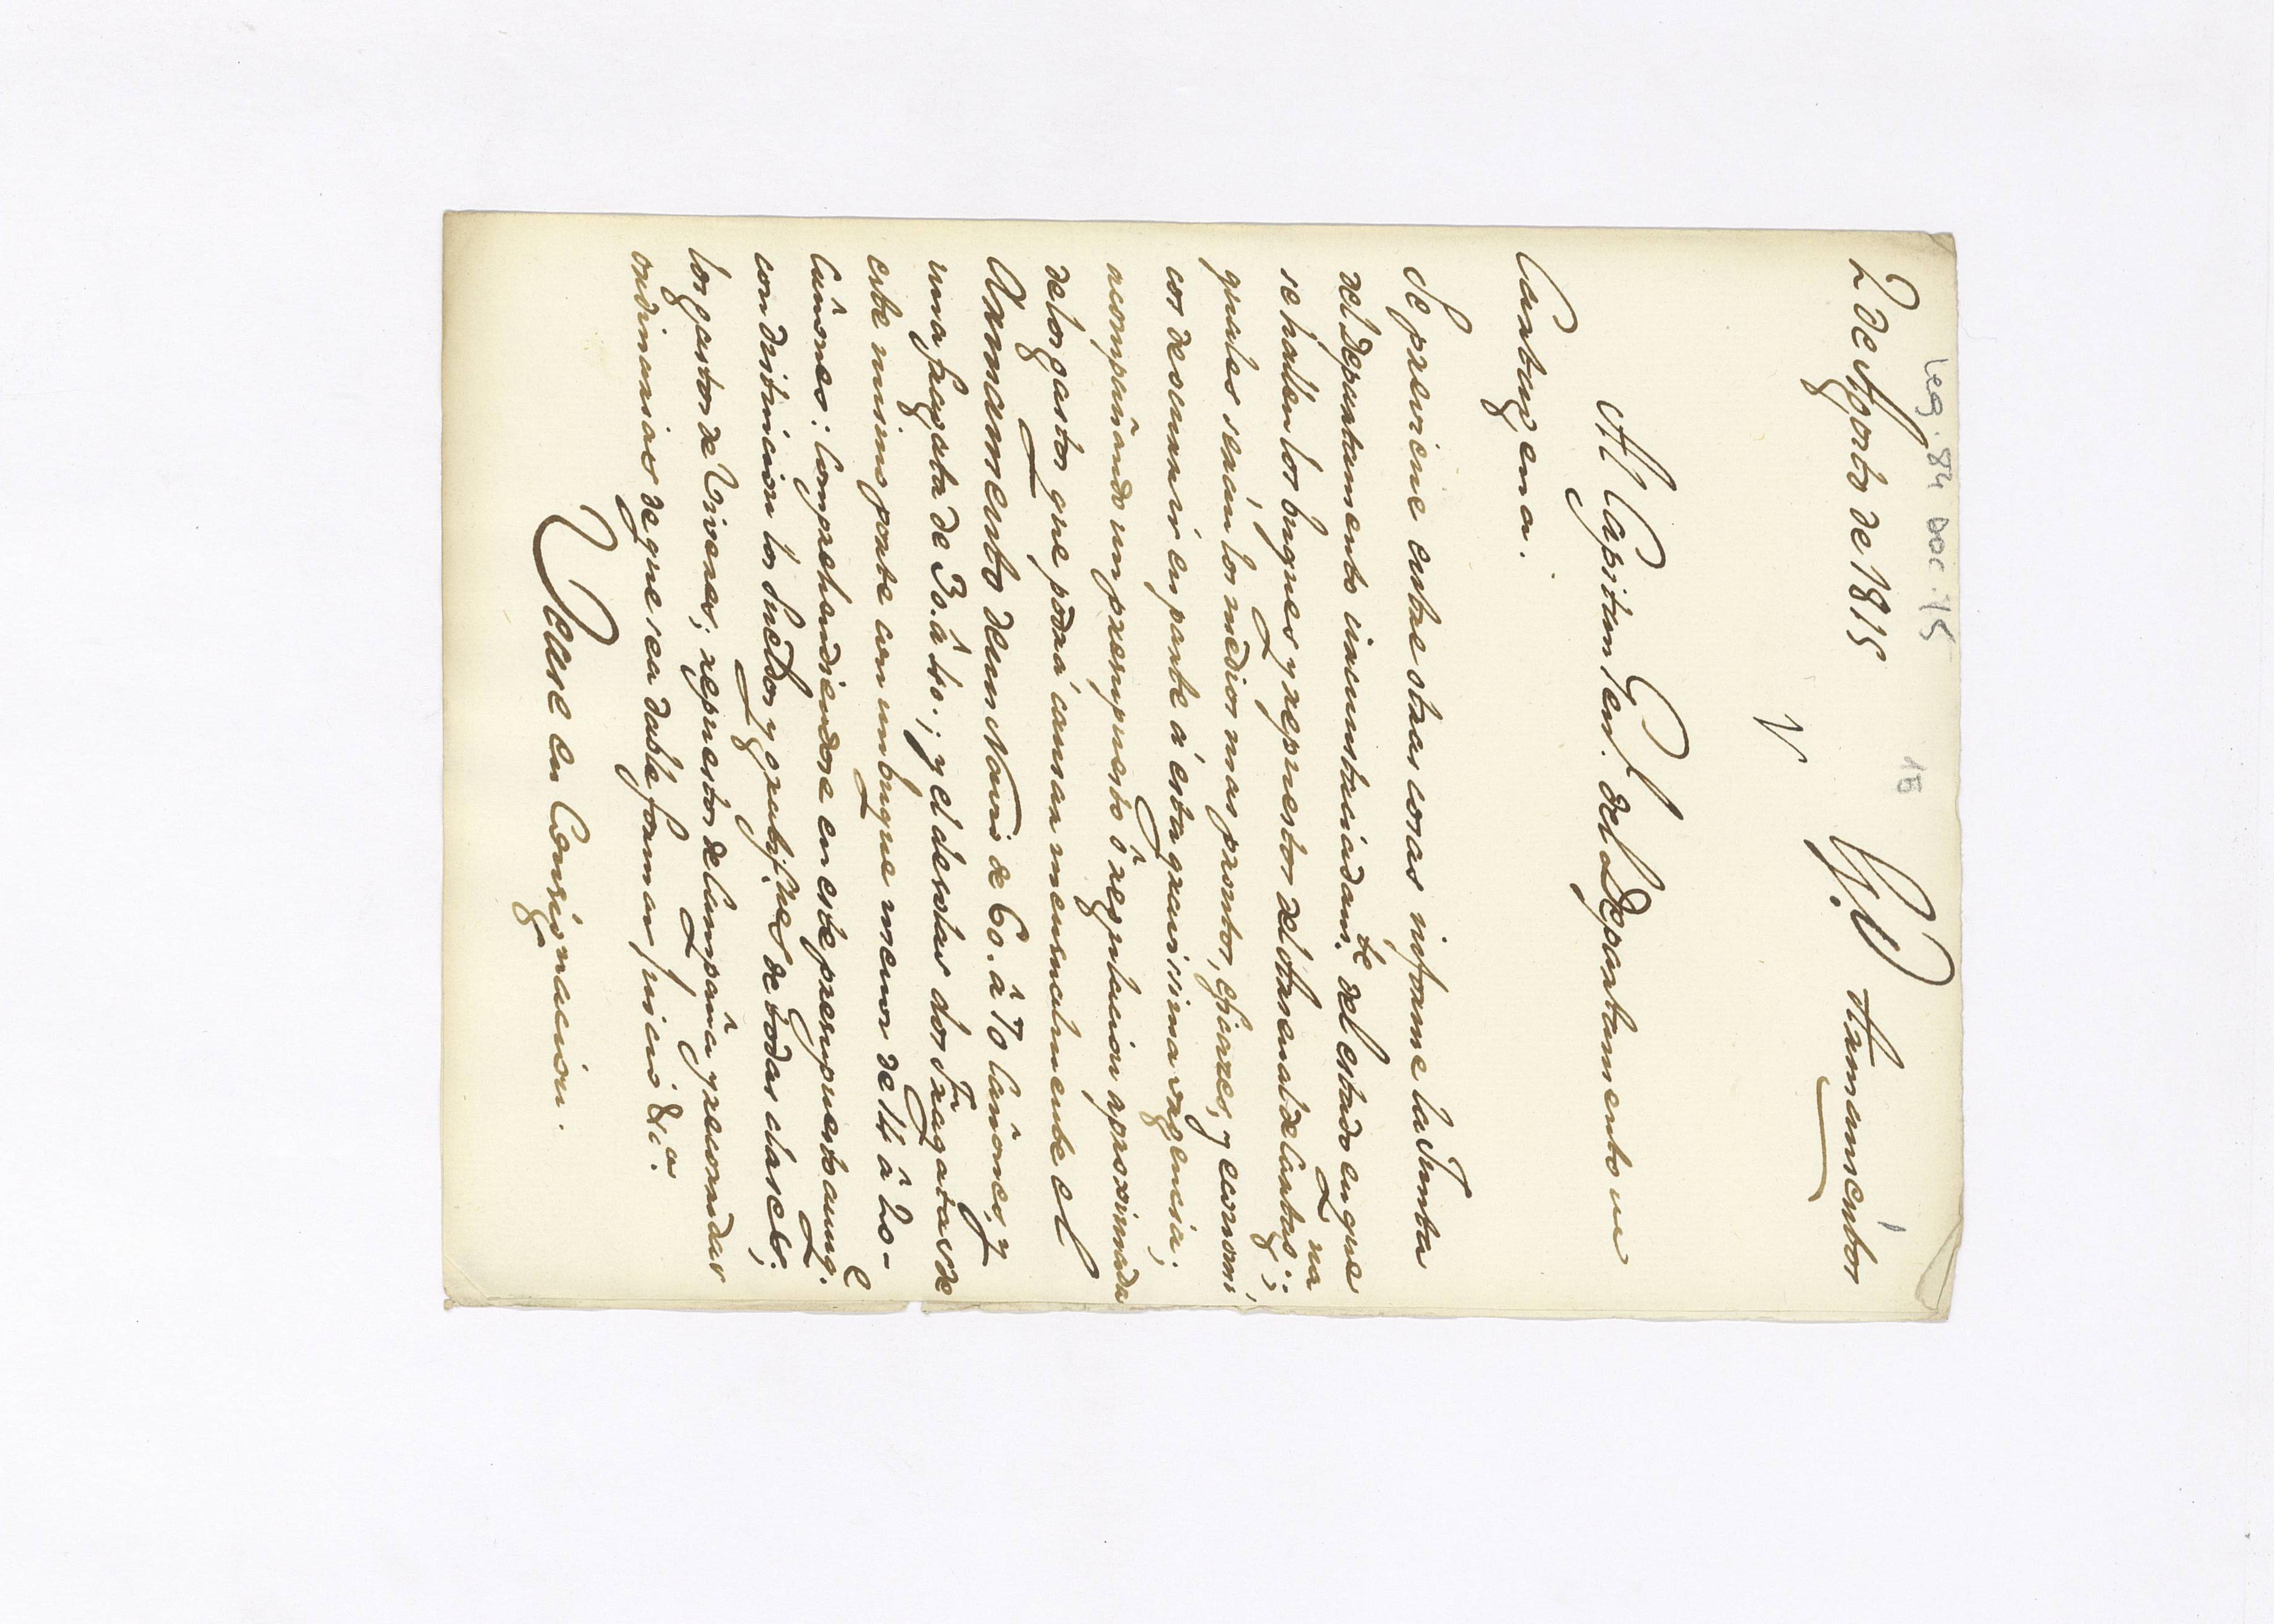 Leg. 84 Doc. 15
15
2 de Agosto de 1815
Armamentos
Al Capitan Genl. del Departamento de
Cartagena.
Se previene entre otras cosas informe la Junta
del Departamento circunstanciadamte. del estado en que
se hallen los buques y repuestos del Arsenal de Cartagna.;
quales seràn los medios mas prontos, eficazes, y economi,
cos de ocurrir en parte à esta gravisima urgencia;
acompañando un presupuesto ô regulacion aproximada
de los gastos que podrà causar mensualmente el
Armamento de un Navio de 60. â 70 Cañones, y
una fragata de 30. â 40.; y el de estas dos Fragatas de
este mismo porte con un buque menor de 14 â 20-
Cañones: comprehendiendose en este presupuesto aunqe.
con distincion los Sueldos y gratifnes. de todas clases;
los gastos de Viveres; repuestos de Campaña y recorridas
ordinarias de que sea dable formar juicio &ca.
Vease en Consignacion.